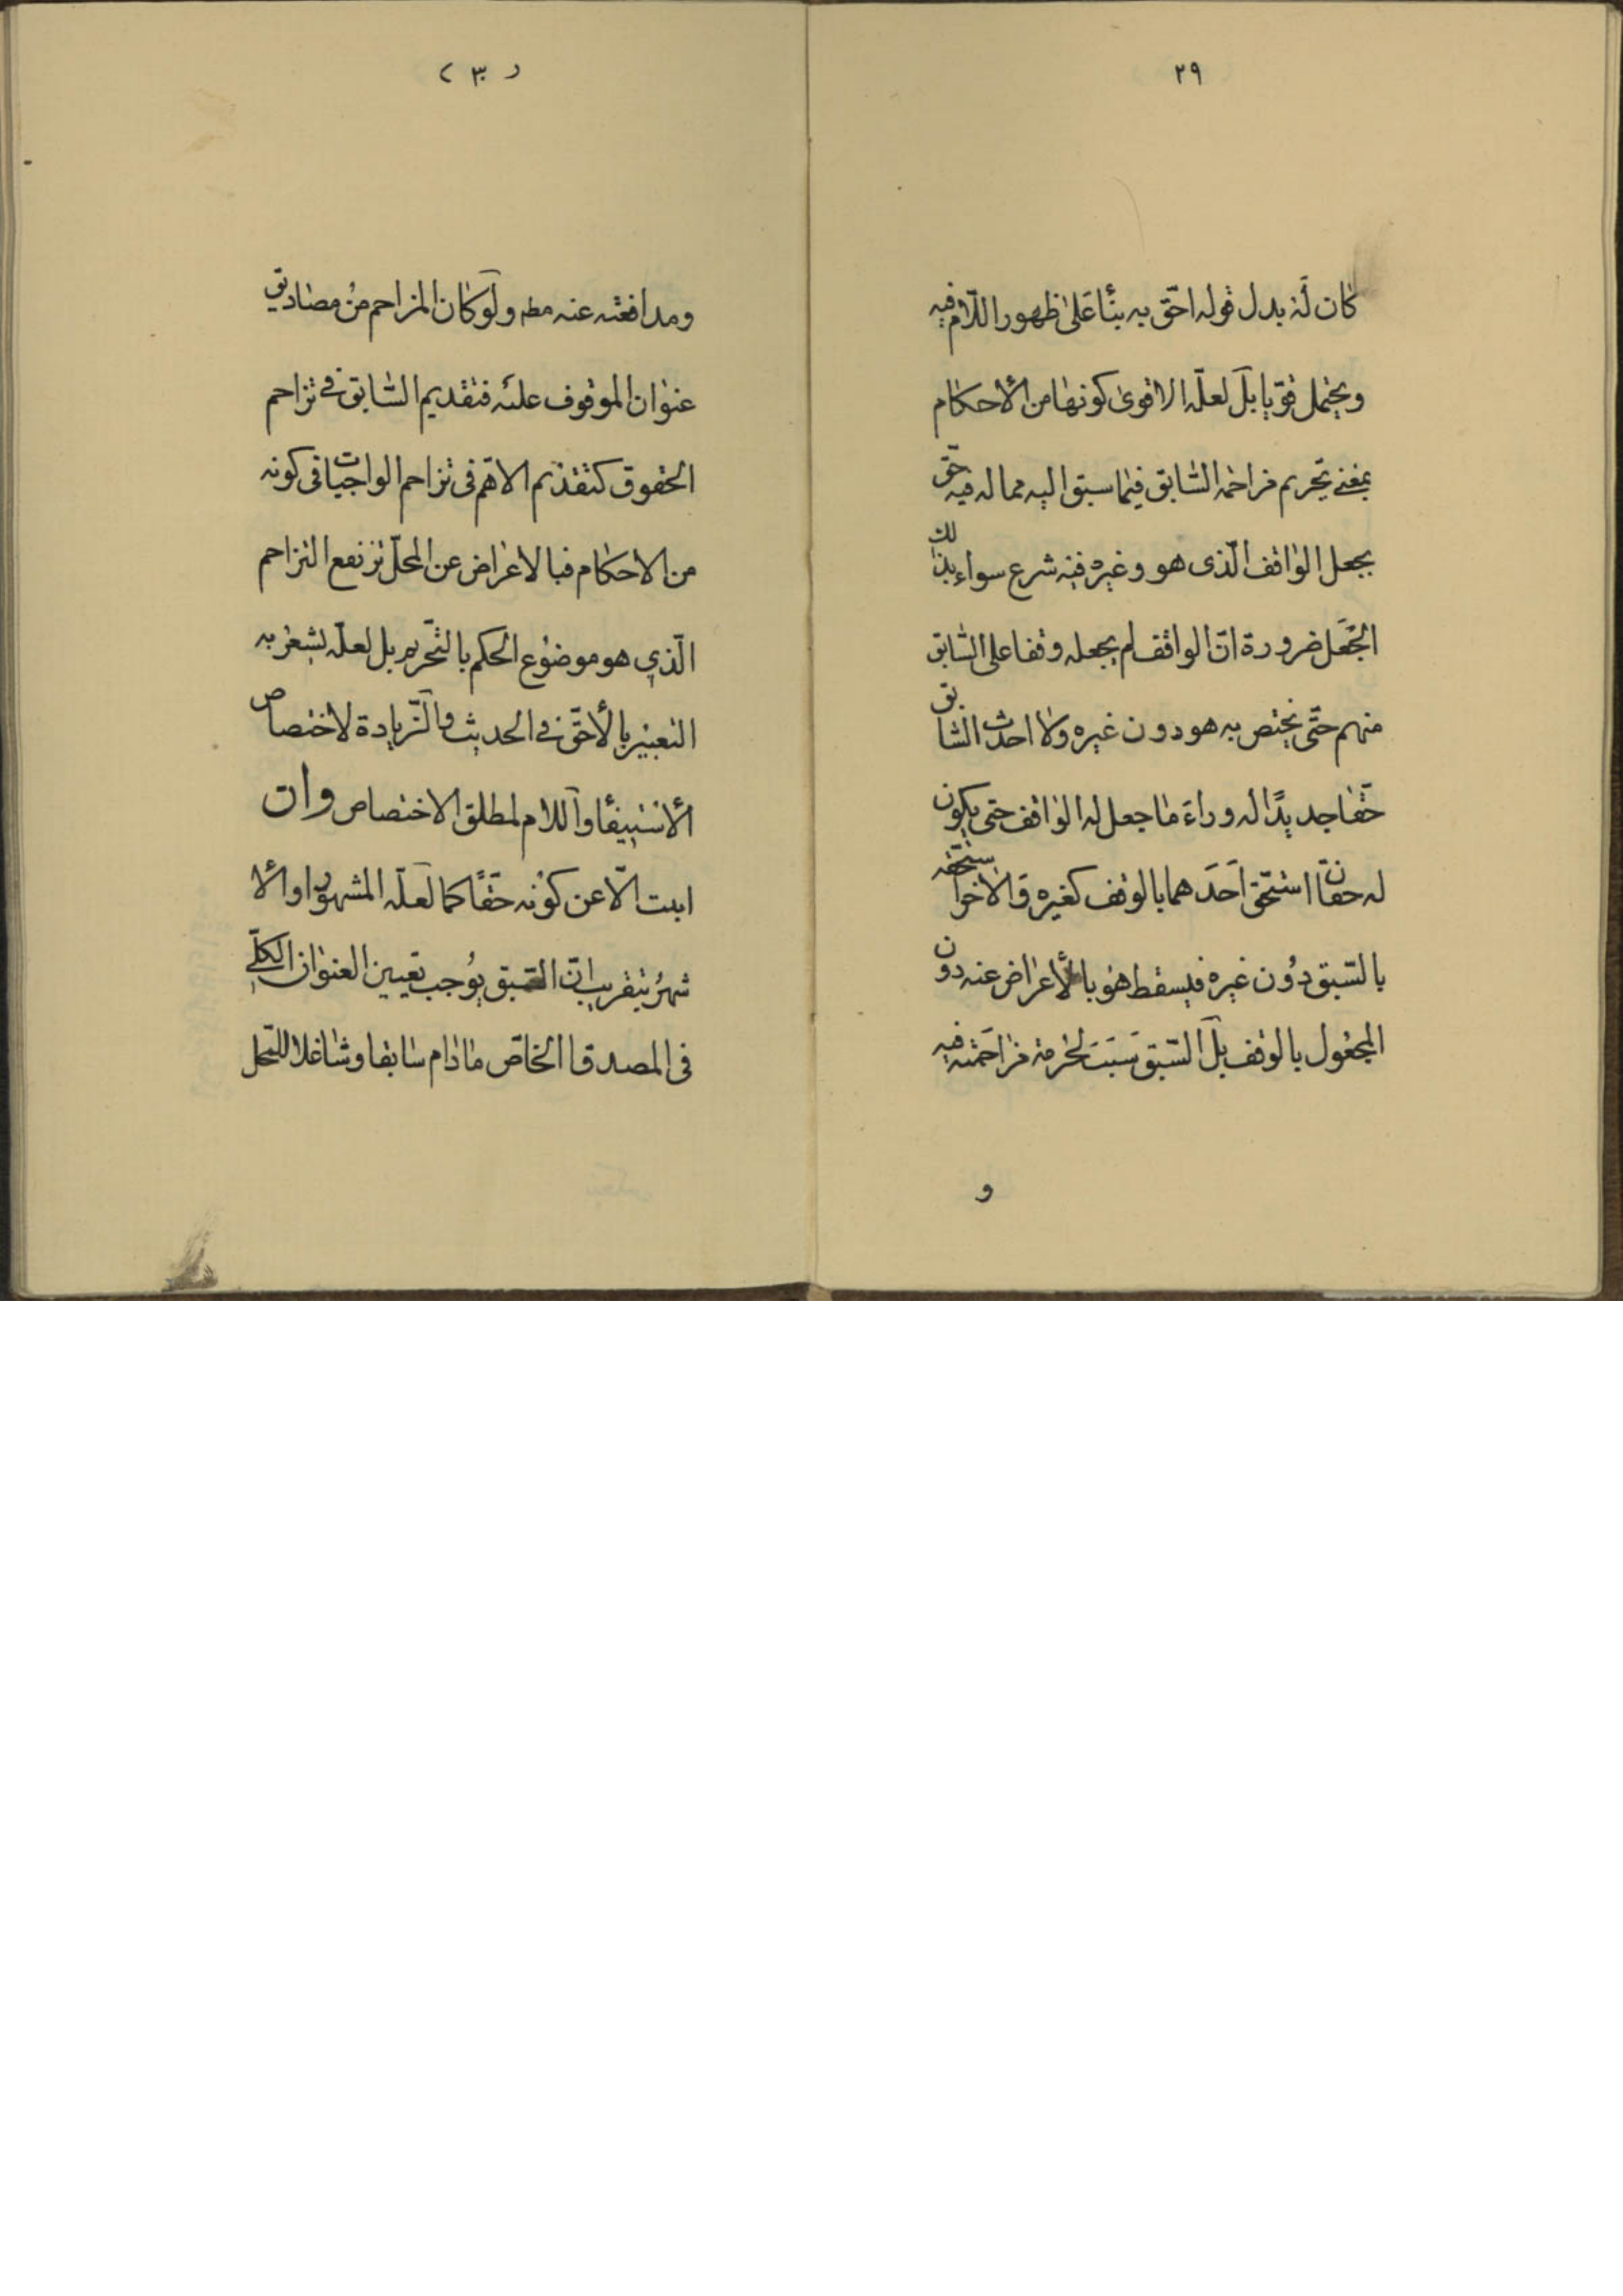 ٢٩
كان له بدل قوله احقّ به بنأ على ظهور اللام فيه
ويحتمل قويا بل لعلّه الاقوى كونها من الأحكام
بمعنى تحريم مزاحمة السّابق فيما سبق اليه مما له فيه حقّ
بجعل الواقف الّذى هو وغيره فيه شرع سواء بذلك
الجعل ضرورة انّ الواقف لم يجعله وقفا على السّابق
منهم حتّى يختص به هو دون غيره ولا احدث السّابق
حقّا جديدًا له وراء ما جعل له الواقف حتى يكون
له حقّان استحق احدهما بالوقف كغيره والاخر استحقه
بالسّبق دون غيره فيسقط هو بالأعراض عنه دون
المجعول بالوقف بل السّبق سبب لحرمة مزاحمته فيه
و
(٣٠)
ومدافعته عنه مطه ولو كان المزاحم من مصاديق
عنوان الموقوف عليه فتقديم السّابق في تزاحم
الحقوق كتقديم الاهّم فى تزاحم الواجبات فى كونه
من الاحكام فبالاعراض عن المحلّ ترتفع التزاحم
الّذي هو موضوع الحكم بالتّحريم بل لعلّه يشعر به
التعبير بالأحقّ في الحديث والزّيادة لاختصاص
الأستيفأ واللام لمطلق الاختصاص وان
ابيت الّا عن كونه حقّا كما لعلّه المشهور او الأ
شهر بتقريب انّ السّبق يوجب تعيين العنوان الكلّي
فى المصداق الخاصّ مادام سابقا وشاغلا للمحل